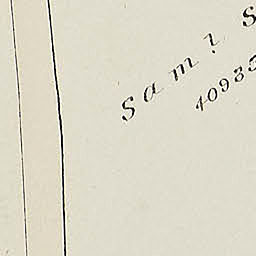 Sam'l S
40935